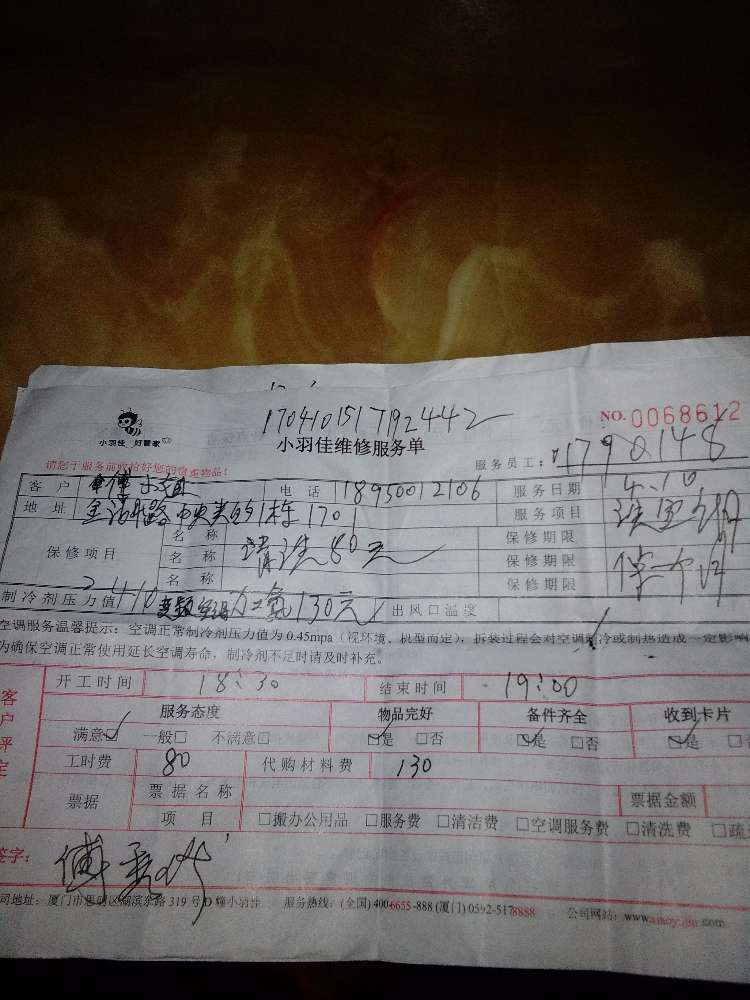 170410151792442
NO. 0068612
小羽佳 好管家
小羽佳维修服务单
服务员工: 1790148
请您于服务前收拾好您的贵重物品!
客户 傅小姐 电话 18950012106 服务日期 4.10
地址 中央美的1栋1701 服务项目
保修项目 名称 清洗80元 保修期限
名称 保修期限
名称 保修期限
制冷剂压力值 变频空调加氟130元 出风口温度
空调服务温馨提示: 空调正常制冷剂压力值为 0.45mpa (视环境、机型而定), 拆装过程会对空调制冷或制热造成一定影响
为确保空调正常使用延长空调寿命, 制冷剂不足时请及时补充。
客户评定
开工时间 18:30 结束时间 19:00
服务态度 物品完好 备件齐全 收到卡片
满意☑ 一般□ 不满意□ ☑是 □否 ☑是 □否 ☑是 □
工时费 80 代购材料费 130
票据 票据名称 票据金额
项目 □搬办公用品 □服务费 □清洁费 □空调服务费 □清洗费 □疏
签字:
司地址: 厦门市思明区湖滨东路 319 号 D 幢小羽佳 服务热线: (全国) 400-6655-888 (厦门) 0592-5178888 公司网站: